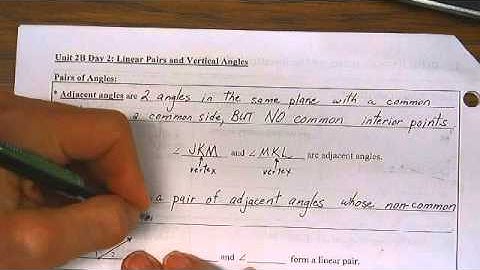 Unit 2B Day 2: Linear Pairs and Vertical Angles
Pairs of Angles:
* Adjacent angles are 2 angles in the same plane with a common
a common side, BUT NO common interior points.
∠ JKM and ∠ MKL are adjacent angles.
vertex vertex
a pair of adjacent angles whose non-common
1 2
and ∠ ______ form a linear pair.